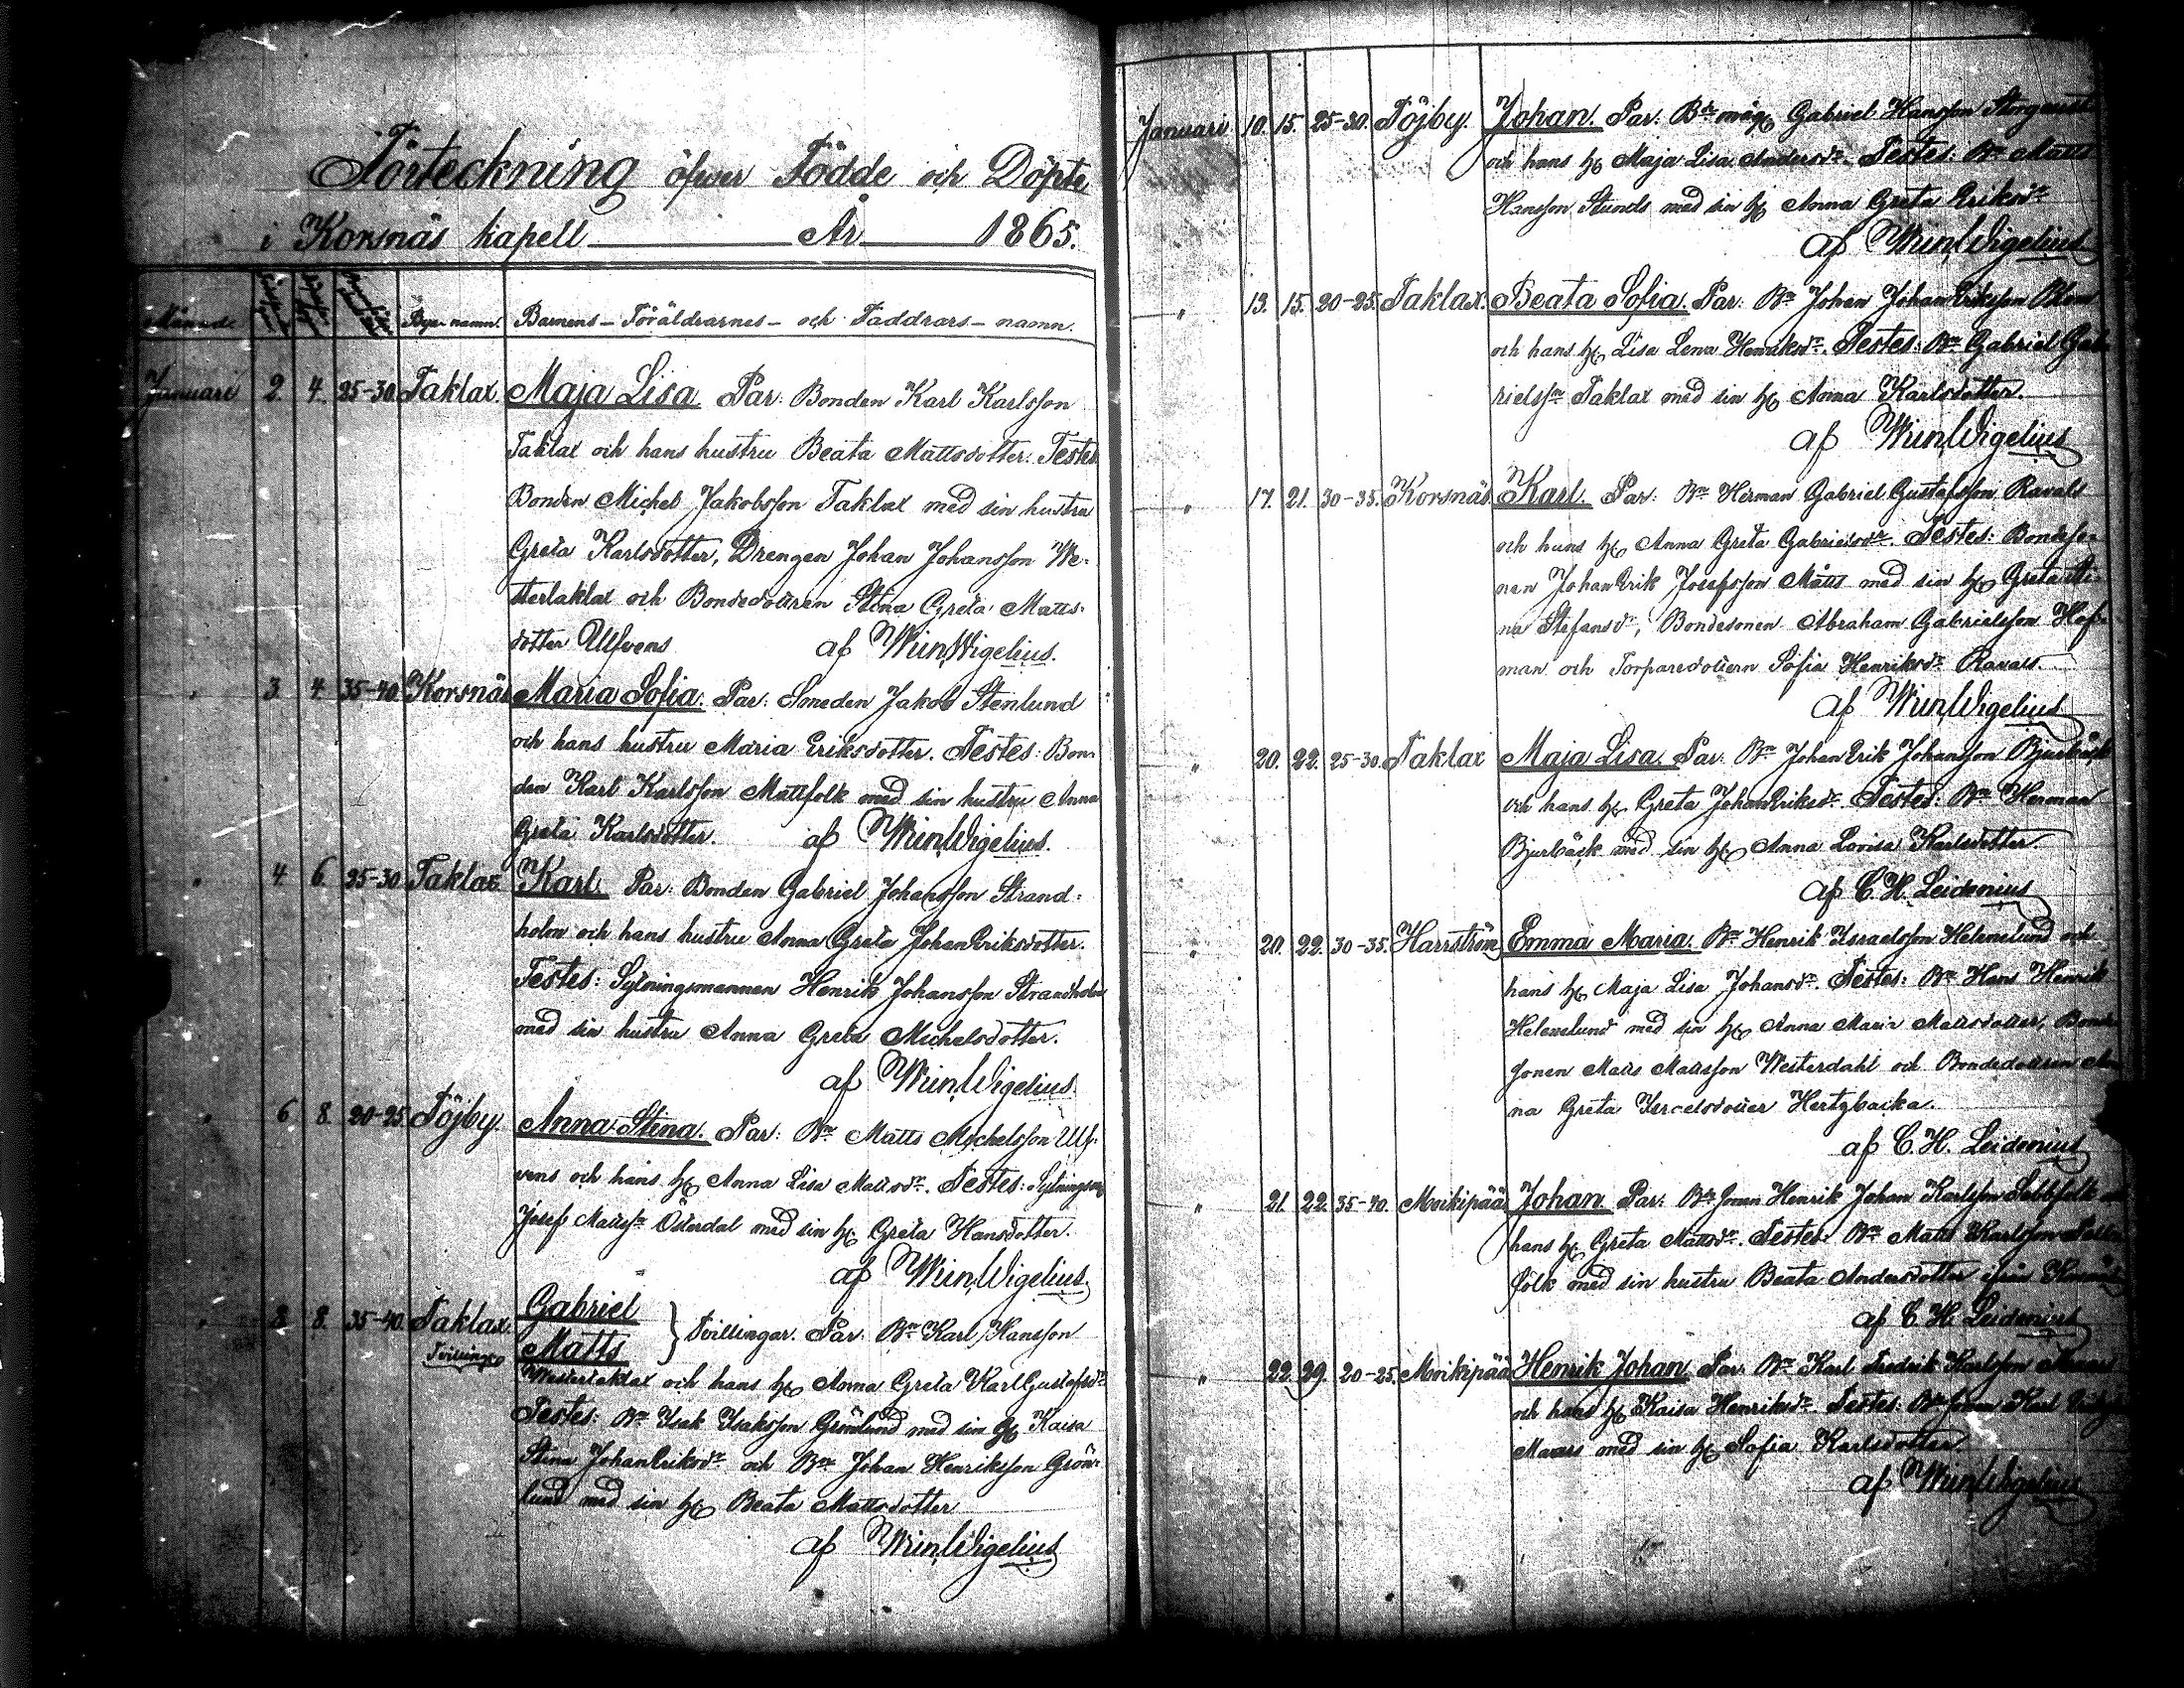 Förteckning öfwer Födde och Döpte
i Korsnäs kapell År 1865.
Månad Byn namn. Barnens - Föräldrarnes - och Faddrars - namn.
Januari 2. 4. 25-30. Taklax. Maja Lisa. Par: Bonden Karl Karlsson
Taklax och hans hustru Beata Mattsdotter. Testes
Bonden Michel Jakobsson Taklax med sin hustru
Greta Karlsdotter, Drengen Johan Johansson We-
sterlaklax och Bondedottren Stina Greta Matts-
dotter Ulfvens af Wigelius.
" 3 4 35-40 Korsnäs Maria Sofia. Par: Smeden Jakob Stenlund
och hans hustru Maria Eriksdotter. Testes: Bon-
den Karl Karlsson Mattfolk med sin hustru Anna
Greta Karlsdotter. af Wigelius.
" 4 6. 25-30 Taklax Karl. Par: Bonden Gabriel Johansson Strand-
holm och hans hustru Anna Greta JohanEriksdotter.
Testes: Sytningsmannen Henrik Johansson Strandholm
med sin hustru Anna Greta Michelsdotter.
af Wigelius
" 6 8. 20-25 Töjby. Anna Stina. Par: Bn Matts Michelsson Ulf-
vens och hans h. Anna Lisa Mattsdr. Testes: Sytningsm
Josef Mattssn Österdal med sin h. Greta Hansdotter.
af Wigelius
" 8. 8. 35-40. Taklax Gabriel
Tvillingar Matts } Tvillingar. Par. Bn Karl Hansson
Westertaklax och hans h. Anna Greta KarlGustafsdr
Testes: Bn Isak Isaksson Grönlund med sin h. Kaisa
Stina JohanEriksdr och Bn Johan Henriksson Grön-
lund med sin h. Beata Mattsdotter
af Wigelius
Januari 10. 15. 25-30. Töjby. Johan. Par. Bde måg Gabriel Hansson
och hans h. Maja Lisa Andersdr. Testes: Bn Matts
Hansson Stunds med sin h. Anna Greta Eriksdr
af Wigelius
" 13. 15. 20-25. Taklax. Beata Sofia. Par: Bn Johan JohanEriksson
och hans h. Lisa Lena Henriksdr. Testes: Bn Gabriel Gab-
rielssn Taklax med sin h. Anna Karlsdotter.
af Wigelius
" 17. 21. 30-35. Korsnäs. Karl. Par: Bn Herman Gabriel Gustafsson Ravals
och hans h. Anna Greta Gabrielsdr. Testes: Bondeso-
nen JohanErik Josefsson Mätts med sin h. Greta Sti-
na Stefansdr, Bondesonen Abraham Gabrielsson Hof-
man och Torparedottern Sofia Henriksdr Ravals
af Wigelius
" 20. 22. 25-30. Taklax Maja Lisa. Par: Bn JohanErik Johansson Bjurbäck
och hans h. Greta JohanEriksdr. Testes: Bn Herman
Bjurbäck med sin h. Anna Lovisa Karlsdotter
af C. H. Leidenius
" 20. 22. 30-35. Harrström Emma Maria. Bn Henrik Israelsson Helenelund och
hans h. Maja Lisa Johansdr. Testes: Bn Hans Henrik
Helenelund med sin h. Anna Maria Mattsdotter, Bonde-
sonen Matts Mattsson Westerdahl och Bondedottren An-
na Greta Isracelsdotter Hertzbacka.
af C. H. Leidenius
" 21. 22. 35-40. Moikipää Johan. Par: Bde sonen Henrik Johan Karlsson Sebbfolk och
hans h. Greta Mattsdr. Testes: Bn Matts Karlsson
folk med sin hustru Beata Andersdotter ifrån Korsnäs
af C. H. Leidenius
" 22. 29. 20-25. Moikipää Henrik Johan. Par Bn Karl Fredrik Karlsson
och hans h. Kaisa Henriksdr. Testes: Bde sonen Karl
med sin h. Sofia Karlsdotter
af Wigelius